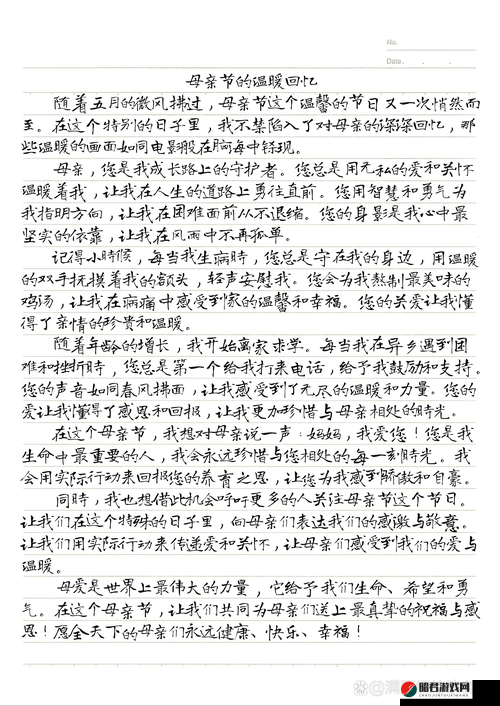 No.
Date . .
母亲节的温暖回忆
随着五月的微风拂过,母亲节这个温馨的节日又一次悄然而
至。在这个特别的日子里,我不禁陷入了对母亲的深深回忆,那
些温暖的画面如同电影般在脑海中浮现。
母亲,您是我成长路上的守护者。您总是用无私的爱和关怀
温暖着我,让我在人生的道路上勇往直前。您用智慧和勇气为
我指明方向,让我在困难面前从不退缩。您的身影是我心中最
坚实的依靠,让我在风雨中不再孤单。
记得小时候,每当我生病时,您总是守在我的身边,用温暖
的双手抚摸着我的额头,轻声安慰我。您会为我熬制最美味的
鸡汤,让我在病痛中感受到家的温馨和幸福。您的关爱让我懂
得了亲情的珍贵和温暖。
随着年龄的增长,我开始离家求学。每当我在异乡遇到困
难和挫折时,您总是第一个给我打来电话,给予我鼓励和支持。
您的声音如同春风拂面,让我感受到了无尽的温暖和力量。您的
爱让我懂得了感恩和回报,让我更加珍惜与母亲相处的时光。
在这个母亲节,我想对母亲说一声:妈妈,我爱您!您是我
生命中最重要的人,我会永远珍惜与您相处的每一刻时光。我
会用实际行动来回报您的养育之恩,让您为我感到骄傲和自豪。
同时,我也想借此机会呼吁更多的人关注母亲节这个节日。
让我们在这个特殊的日子里,向母亲们表达我们的感激与敬意。
让我们用实际行动来传递爱和关怀,让母亲们感受到我们的爱与
温暖。
母爱是世界上最伟大的力量,它给予我们生命、希望和勇
气。在这个母亲节,让我们共同为母亲们送上最真挚的祝福与感
恩!愿全天下的母亲们永远健康、快乐、幸福!
昭君游戏网